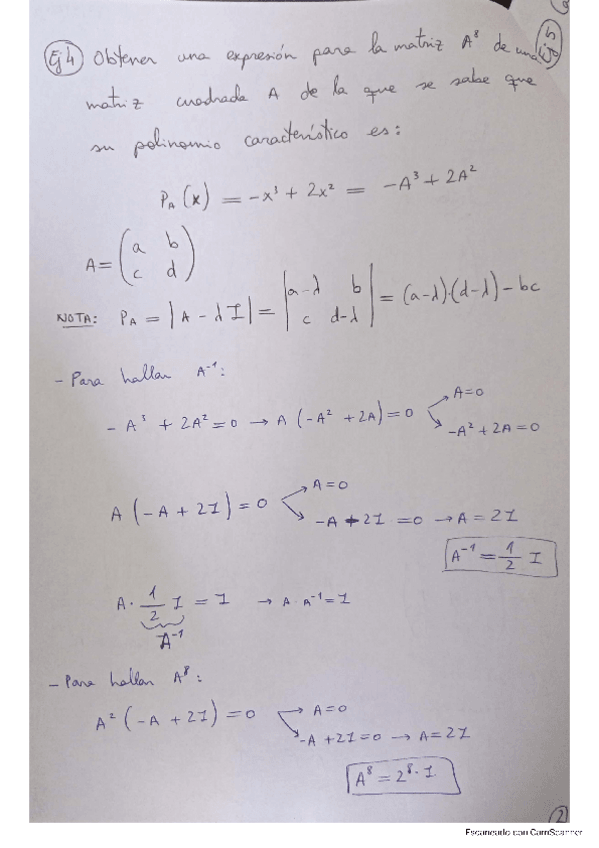 Ej 4) Obtener una expresión para la matriz A⁸ de una
matriz cuadrada A de la que se sabe que
su polinomio característico es:
P_A (x) = -x³ + 2x² = -A³ + 2A²
A = (a b
c d)
NOTA: P_A = |A - λI| = |a-λ b
c d-λ| = (a-λ)·(d-λ) - bc
- Para hallar A⁻¹:
- A³ + 2A² = 0 → A (-A² + 2A) = 0 → A = 0
→ -A² + 2A = 0
A (-A + 2I) = 0 → A = 0
→ -A + 2I = 0 → A = 2I
A⁻¹ = 1/2 I
A · 1/2 I = I → A · A⁻¹ = I
A⁻¹
- Para hallar A⁸:
A² (-A + 2I) = 0 → A = 0
→ -A + 2I = 0 → A = 2I
A⁸ = 2⁸ · I
2
Escaneado con CamScanner